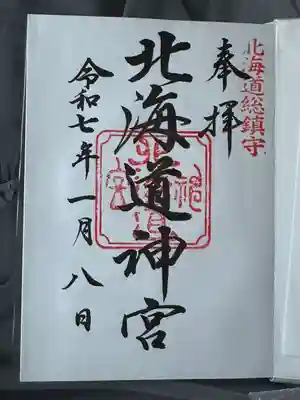 北海道総鎮守
奉拝
北海道神宮
令和七年一月八日
北海道神宮